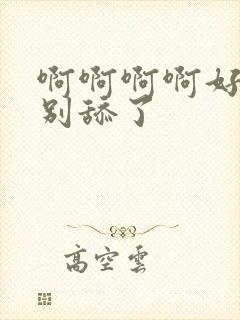 啊啊啊啊好
别舔了
高空雲